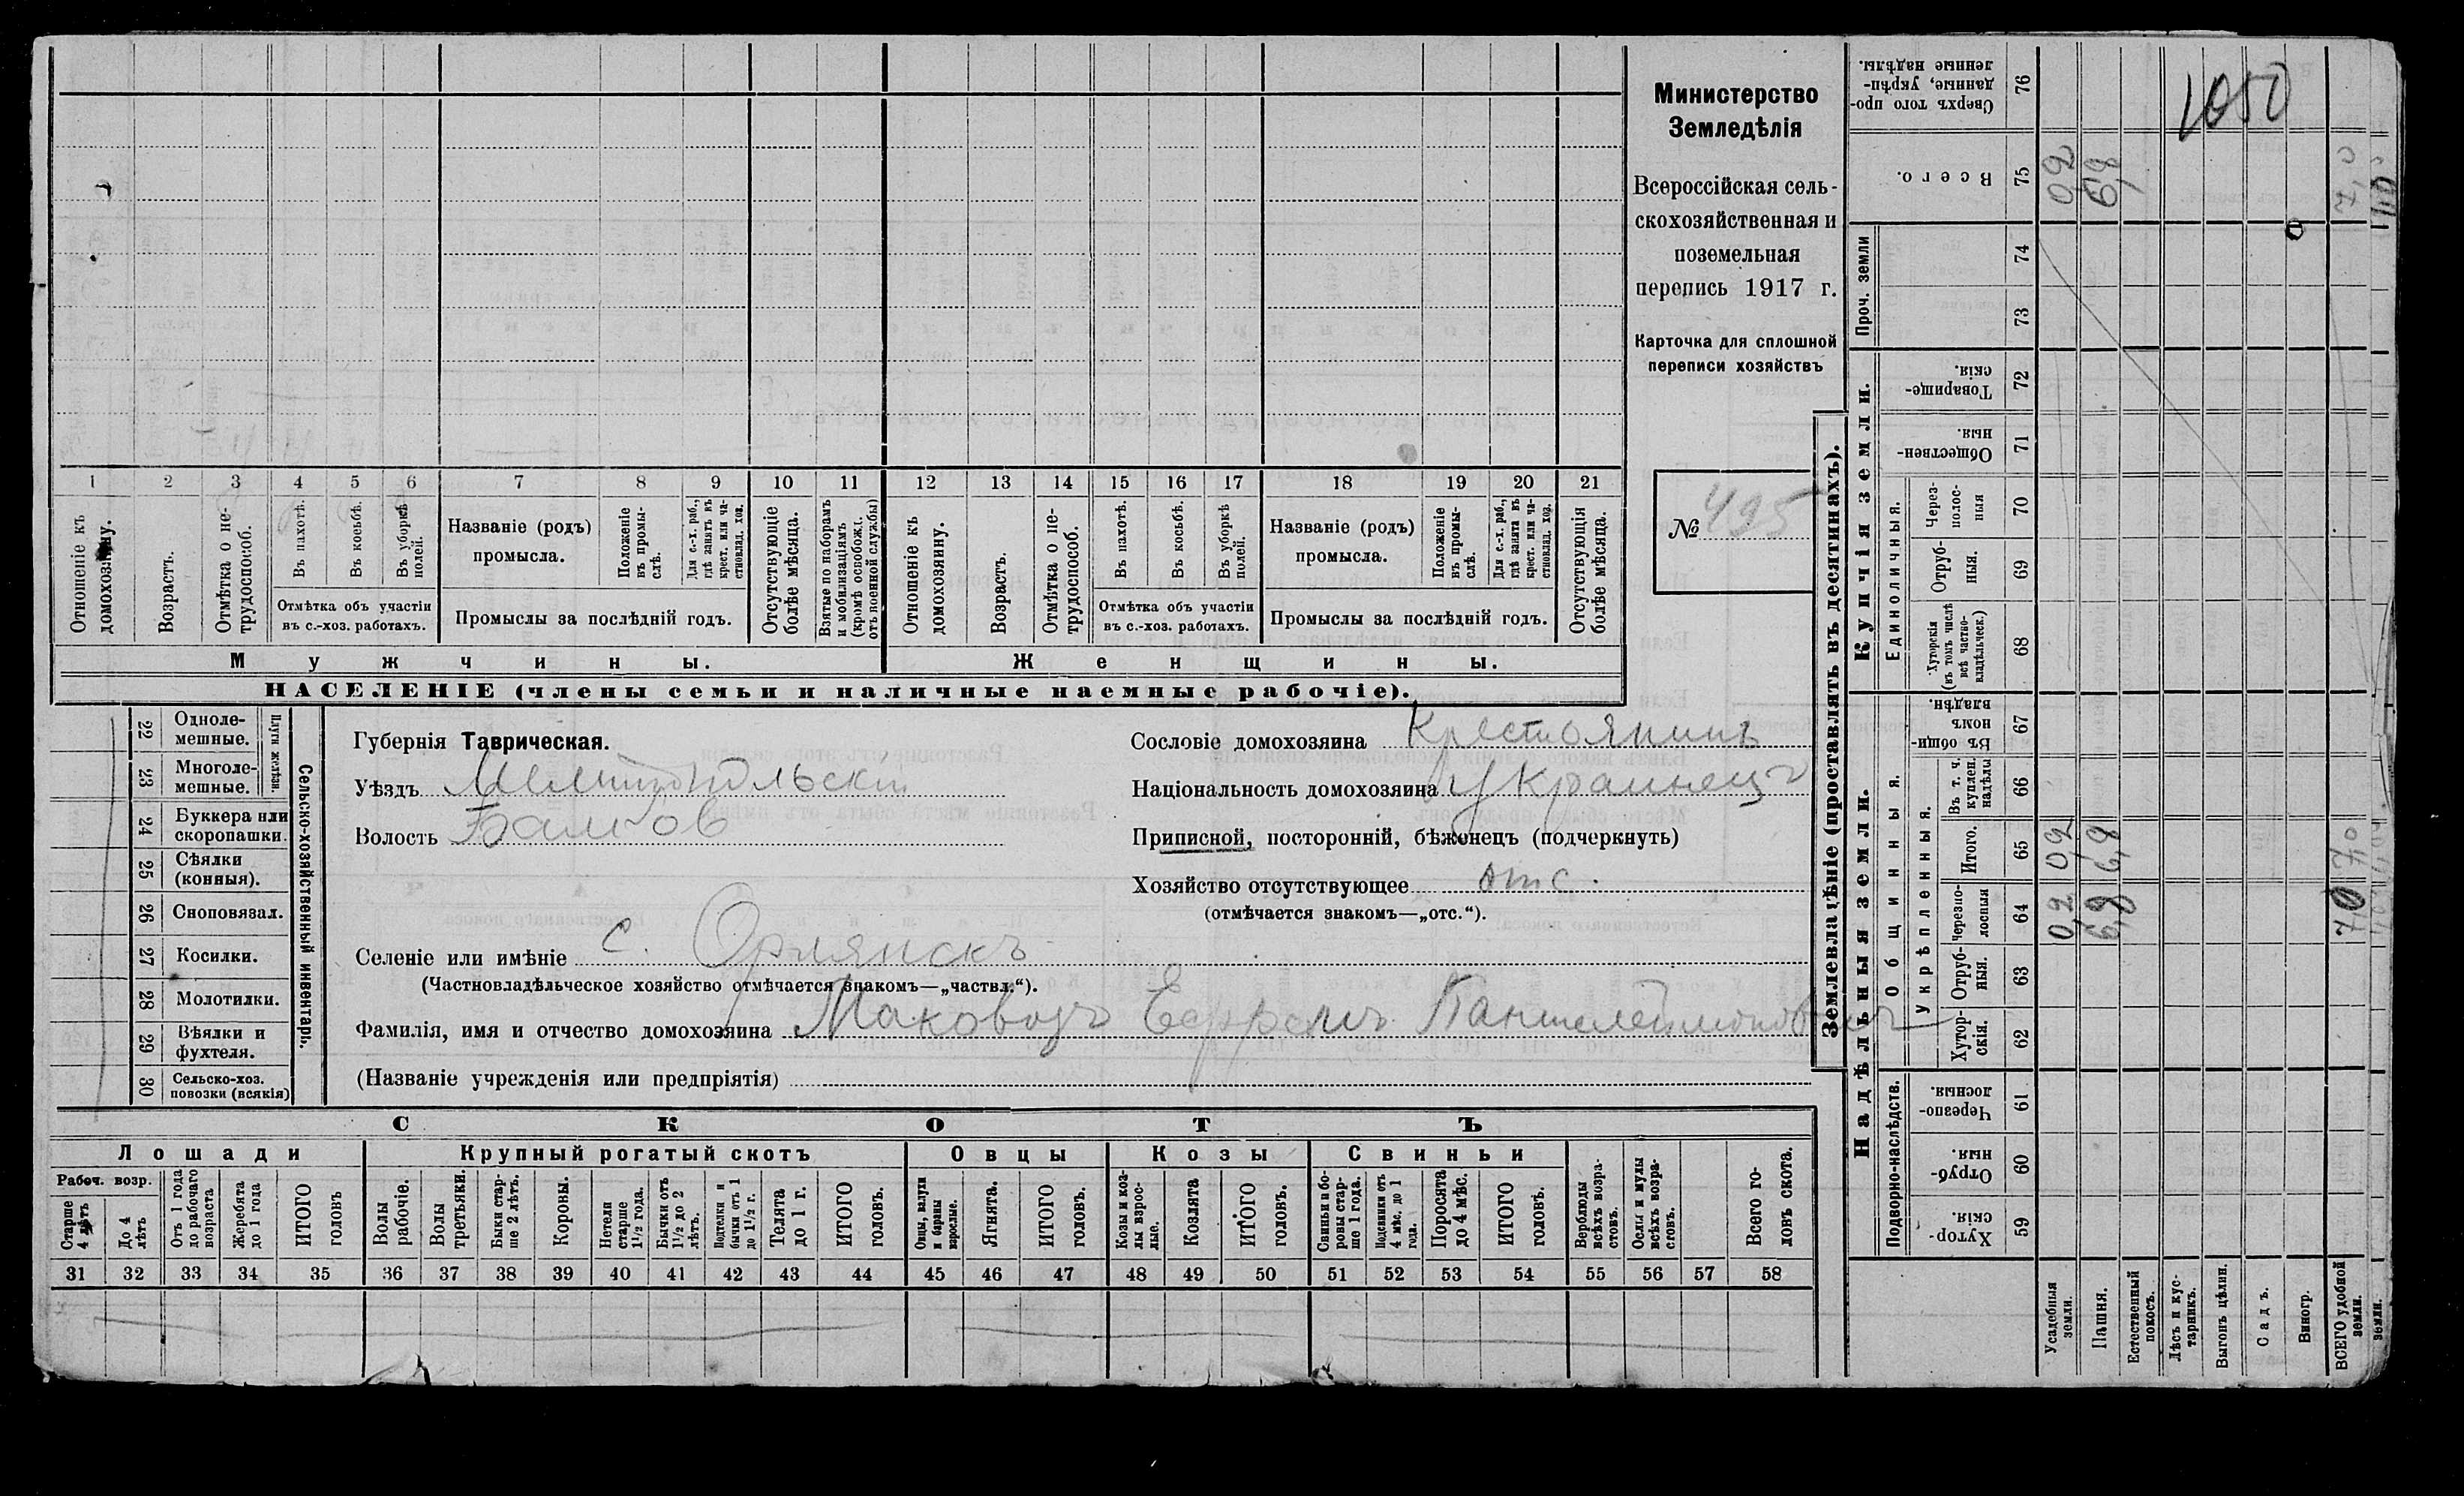 Министерство
Земледѣлія
Всероссійская сель-
скохозяйственная и
поземельная
перепись 1917 г.
Карточка для сплошной
переписи хозяйствъ
№ 495
1 2 3 4 5 6 7 8 9 10 11 12 13 14 15 16 17 18 19 20 21
Отношеніе къ домохозяину.
Возрастъ.
Отмѣтка о не-трудоспособ.
Въ пахотѣ.
Въ косьбѣ.
Въ уборкѣ полей.
Отмѣтка объ участіи
въ с.-хоз. работахъ.
Названіе (родъ)
промысла.
Положеніе въ промы-слѣ.
Для с.-х. раб., гдѣ занятъ въ крест. или ча-стновлад. хоз.
Промыслы за послѣдній годъ.
Отсутствующіе болѣе мѣсяца.
Взятые по наборамъ и мобилизаціямъ (кромѣ освобожд. отъ военной службы)
Отношеніе къ домохозяину.
Возрастъ.
Отмѣтка о не-трудоспособ.
Въ пахотѣ.
Въ косьбѣ.
Въ уборкѣ полей.
Отмѣтка объ участіи
въ с.-хоз. работахъ.
Названіе (родъ)
промысла.
Положеніе въ промы-слѣ.
Для с.-х. раб., гдѣ занята въ крест. или ча-стновлад. хоз.
Промыслы за послѣдній годъ.
Отсутствующія болѣе мѣсяца.
Мужчины.
Женщины.
НАСЕЛЕНІЕ (члены семьи и наличные наемные рабочіе).
22 Одноле-мешные.
23 Многоле-мешные.
Плуги желѣзн.
24 Буккера или скоропашки.
25 Сѣялки (конныя).
26 Сноповязал.
27 Косилки.
28 Молотилки.
29 Вѣялки и фухтеля.
30 Сельско-хоз. повозки (всякія)
Сельско-хозяйственный инвентарь.
Губернія Таврическая.
Уѣздъ Мелитопольскій
Волость Балков
Селеніе или имѣніе с. Орлянскъ
(Частновладѣльческое хозяйство отмѣчается знакомъ—„частвл.“).
Фамилія, имя и отчество домохозяина Маковозъ Ефремъ Пантелеймонович
(Названіе учрежденія или предпріятія)
Сословіе домохозяина Крестьянинъ
Національность домохозяина Украинецъ
Приписной, посторонній, бѣженецъ (подчеркнуть)
Хозяйство отсутствующее отс.
(отмѣчается знакомъ—„отс.“).
СКОТЪ
Лошади
Крупный рогатый скотъ
Овцы
Козы
Свиньи
Рабоч. возр.
Старше 4 лѣтъ
До 4 лѣтъ
Отъ 1 года до рабочаго возраста
Жеребята до 1 года
ИТОГО головъ
Волы рабочіе.
Волы третьяки.
Быки стар-ше 2 лѣтъ.
Коровы.
Нетели старше 1½ года.
Бычки отъ 1½ до 2 лѣтъ.
Подтелки и бычки отъ 1 до 1½ г.
Телята до 1 г.
ИТОГО головъ.
Овцы, валухи и бараны взрослые.
Ягнята.
ИТОГО головъ.
Козы и коз-лы взрос-лые.
Козлята
ИТОГО головъ.
Свиньи и бо-ровы стар-ше 1 года.
Подсвинки отъ 4 мѣс. до 1 года.
Поросята до 4 мѣс.
ИТОГО головъ.
Верблюды всѣхъ возра-стовъ.
Ослы и мулы всѣхъ возра-стовъ.
Всего го-ловъ скота.
31 32 33 34 35 36 37 38 39 40 41 42 43 44 45 46 47 48 49 50 51 52 53 54 55 56 57 58
Землевладѣніе (проставлять въ десятинахъ).
Надѣльныя земли.
Купчія земли.
Проч. земли
Подворно-наслѣдств.
Общинныя.
Укрѣпленныя.
Единоличныя.
76 Сверхъ того про-данные, укрѣп-ленные надѣлы.
1050
75 Всего. 0,2 6,8 7,0
74
73
72 Товарище-скія.
71 Обществен-ныя.
70 Через-полос-ныя
69 Отруб-ныя.
68 Хуторскія (въ томъ числѣ всѣ частно-владѣльческ.)
67 Въ общи-номъ владѣн.
66 Въ т. ч. куплен. надѣлы
65 Итого. 0,2 6,8 7,0
64 Черезпо-лосныя 0,2 6,8 7,0
63 Отруб-ныя.
62 Хутор-скія.
61 Черезпо-лосныя.
60 Отруб-ныя.
59 Хутор-скія.
Усадебныя земли.
Пашня.
Естественный покосъ.
Лѣсъ и кус-тарникъ.
Выгонъ цѣлин.
Садъ.
Виногр.
ВСЕГО удобной земли.
земли.